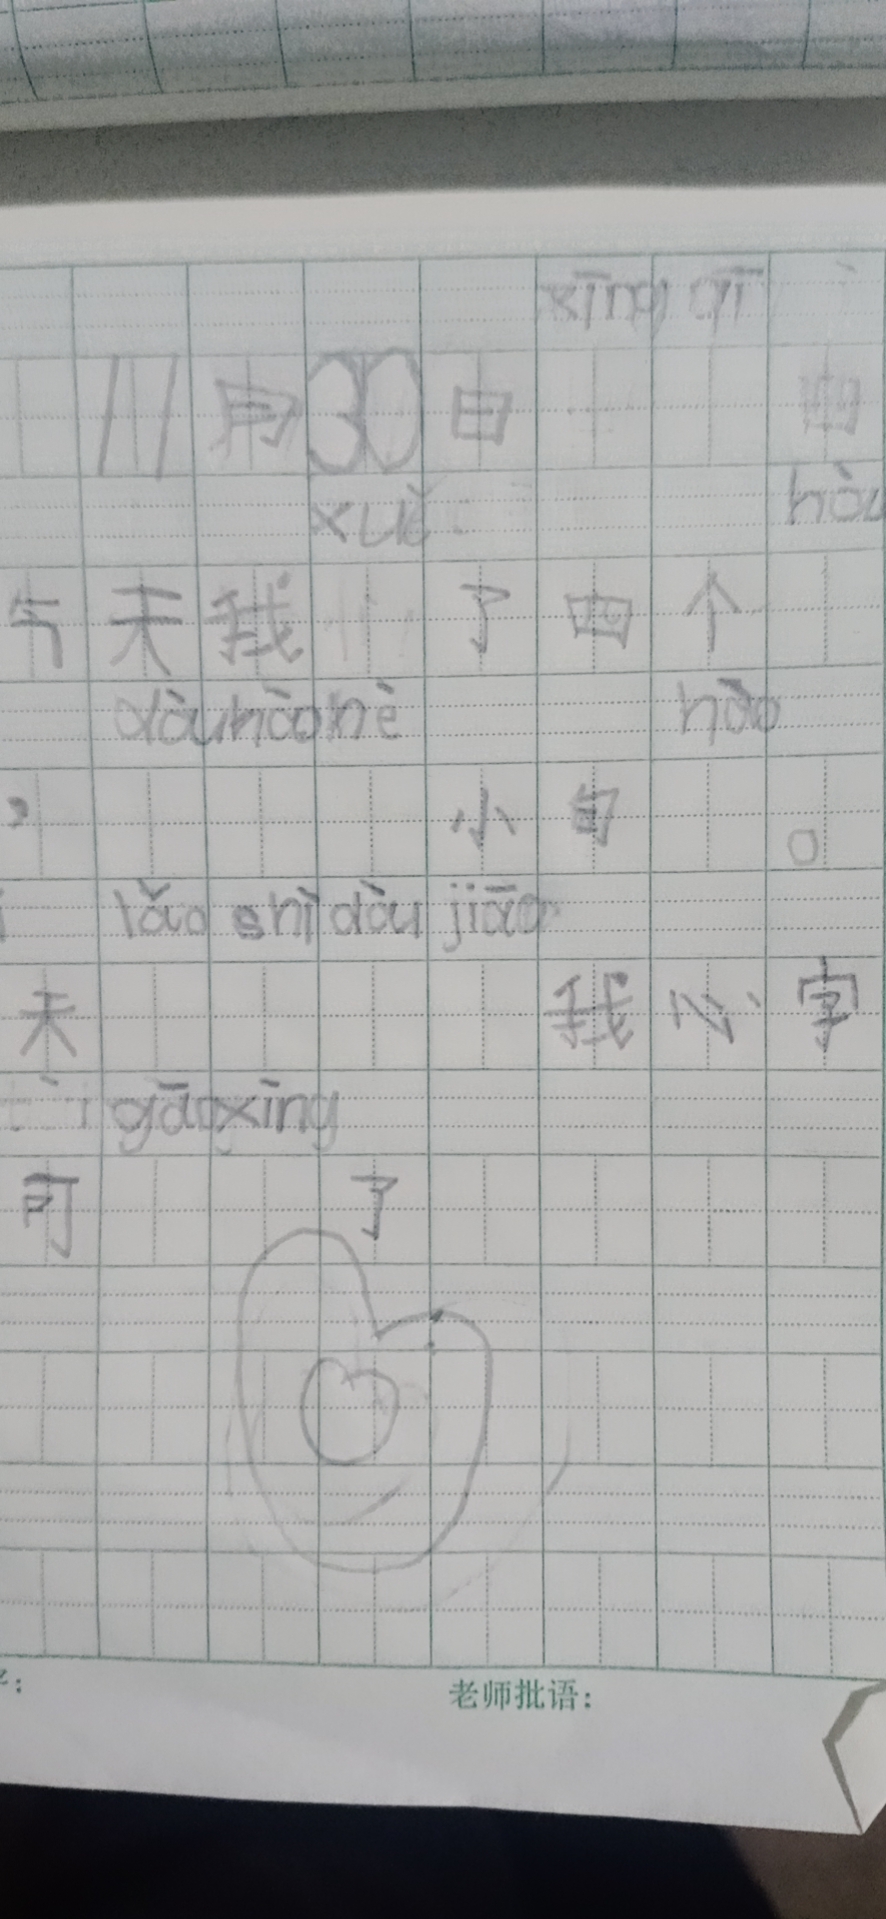 xīng qī
11月30日 四
xuě hòu
今天我 了四个
dòu hào hè hào
， 小句 。
lǎo shī dòu jiāo
天 我 心 字
gāo xīng
可 了
老师批语：